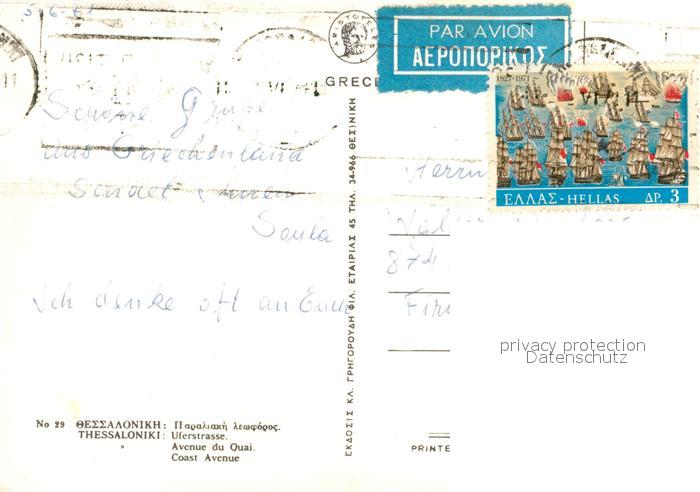 5-6-71
PAR AVION
ΑΕΡΟΠΟΡΙΚΩΣ
GREECE
1821-1971
ΕΛΛΑΣ-HELLAS ΔΡ. 3
Schöne Grüße
aus Griechenland
Sendet
Soula
Ich denke oft an Euch
Herrn
87
privacy protection
Datenschutz
ΕΚΔΟΣΙΣ ΚΛ. ΓΡΗΓΟΡΟΥΔΗ ΦΙΛ. ΕΤΑΙΡΙΑΣ 45 ΤΗΛ. 34-966 ΘΕΣ/ΝΙΚΗ
No 29 ΘΕΣΣΑΛΟΝΙΚΗ: Παραλιακή λεωφόρος.
THESSALONIKI: Uferstrasse.
" Avenue du Quai.
Coast Avenue
PRINTE